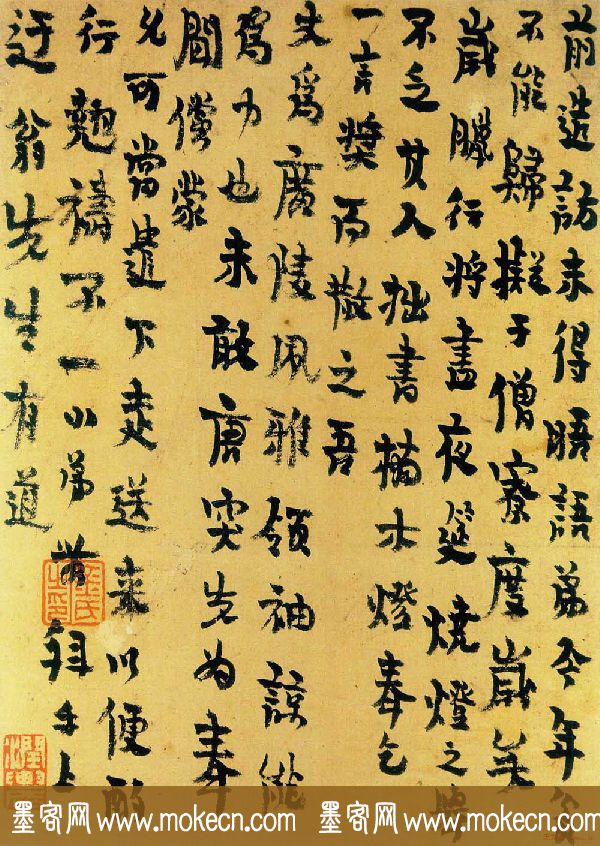 前造訪未得晤語弟今年
不能歸擬于僧寮度歲矣
歲臘行將盡夜筵燒燈之
不乏其人拙書楠木燈奉乞
一言獎而散之吾
丈為廣陵風雅領袖諒能
為力也未敢唐突先為奉
聞儻蒙
允可當遣下走送來以便酌
行懇禱不一小弟農拜手上
迂翁先生有道
墨客网 www.mokecn.com 墨客网 www.mokecn.com